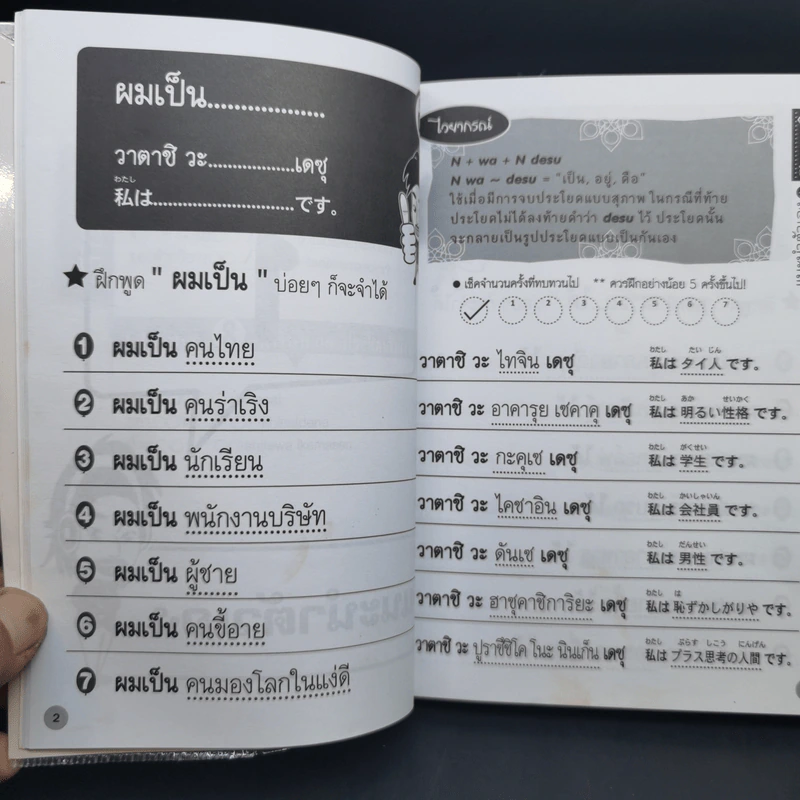 ผมเป็น..................
วาตาชิ วะ...............เดซุ
わたし
私は.........................です。
★ ฝึกพูด " ผมเป็น " บ่อยๆ ก็จะจำได้
1 ผมเป็น คนไทย
2 ผมเป็น คนร่าเริง
3 ผมเป็น นักเรียน
4 ผมเป็น พนักงานบริษัท
5 ผมเป็น ผู้ชาย
6 ผมเป็น คนขี้อาย
7 ผมเป็น คนมองโลกในแง่ดี
2
ไวยากรณ์
N + wa + N desu
N wa ~ desu = "เป็น, อยู่, คือ"
ใช้เมื่อมีการจบประโยคแบบสุภาพ ในกรณีที่ท้าย
ประโยคไม่ได้ลงท้ายคำว่า desu ไว้ ประโยคนั้น
จะกลายเป็นรูปประโยคแบบเป็นกันเอง
● เช็คจำนวนครั้งที่ทบทวนไป ** ควรฝึกอย่างน้อย 5 ครั้งขึ้นไป!
1 2 3 4 5 6 7
わたし たい じん
วาตาชิ วะ ไทจิน เดซุ 私は タイ人 です。
わたし あか せいかく
วาตาชิ วะ อาคารุย เซคาคุ เดซุ 私は 明るい性格 です。
わたし がくせい
วาตาชิ วะ กะคุเซ เดซุ 私は 学生 です。
わたし かいしゃいん
วาตาชิ วะ ไคชาอิน เดซุ 私は 会社員 です。
わたし だんせい
วาตาชิ วะ ดันเซ เดซุ 私は 男性 です。
わたし は
วาตาชิ วะ ฮาซุคาชิการิยะ เดซุ 私は 恥ずかしがりや です。
わたし ぷらす しこう にんげん
วาตาชิ วะ ปูราซึชิโค โนะ นินเก็น เดซุ 私は プラス思考の人間 です。